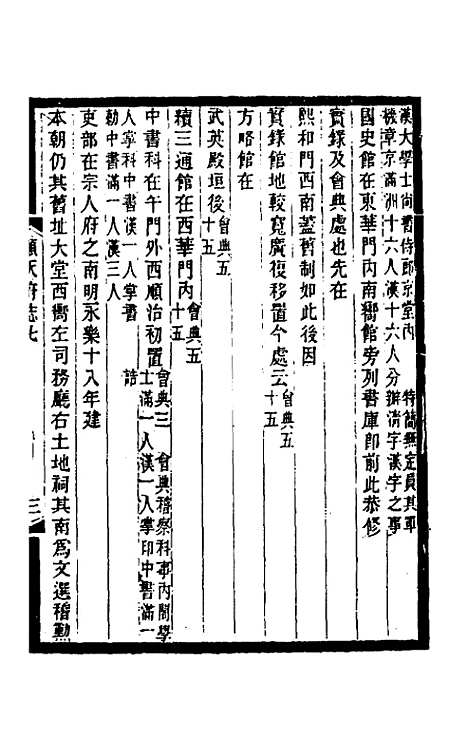 漢大學士尚書侍郎京堂內特簡無定員其軍
機章京滿洲十六人漢十六人分辦清字漢字之事
國史館在東華門內南嚮館旁列書庫卽前此恭修
實錄及會典處也先在
熙和門西南蓋舊制如此後因
實錄館地較寬廣復移置今處云會典五
十五
方略館在
武英殿垣後會典五
十五
續三通館在西華門內會典五
十五
中書科在午門外西順治初置會典三會典稽察科事內閣學
士滿一人漢一人掌印中書滿一
人掌科中書漢一人掌書誥
勅中書滿一人漢三人
吏部在宗人府之南明永樂十八年建
本朝仍其舊址大堂西嚮左司務廳右土地祠其南爲文選稽勳
順天府志七
三